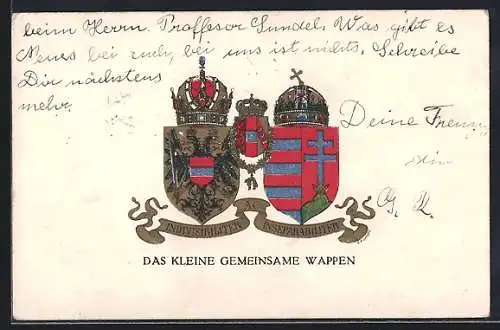 beim Herrn. Proffesor Gundel. Was gibt es
Neues bei euch, bei uns ist nichts, Schreibe
Dir nächstens
mehr.
Deine Freun-
din
G. L.
INDIVISIBILITER AC INSEPARABILITER
DAS KLEINE GEMEINSAME WAPPEN